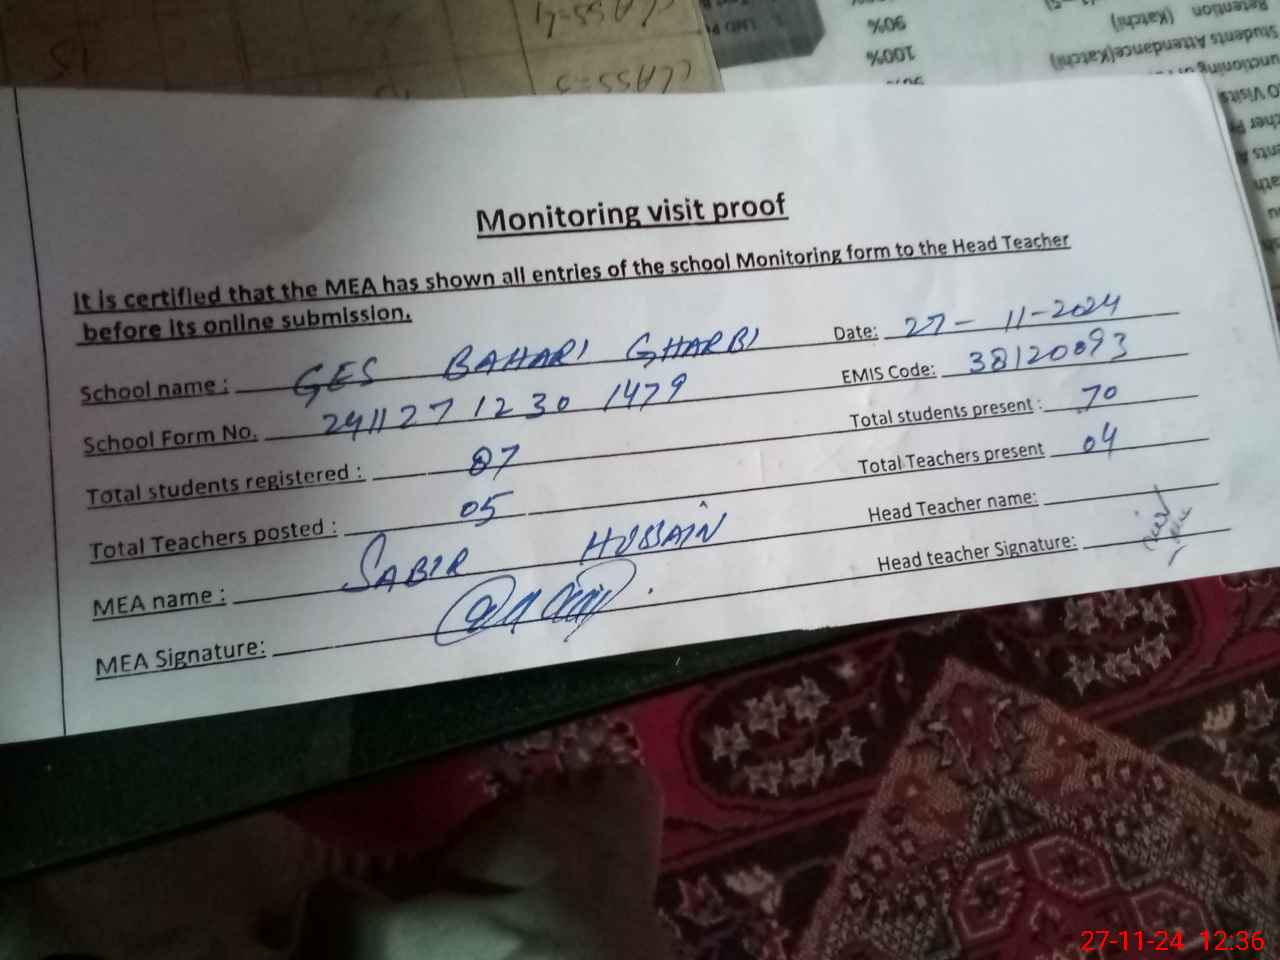 CLASS-4
15
CLASS-5
90%
100%
Retention (Katchi)
Students Attendance(Katchi)
Monitoring visit proof
It is certified that the MEA has shown all entries of the school Monitoring form to the Head Teacher
before its online submission.
School name : GES BAHARI GHARBI Date: 27-11-2024
School Form No. 2411271230 1479 EMIS Code: 38120093
Total students registered : 87 Total students present : 70
Total Teachers posted : 05 Total Teachers present 04
MEA name : SABIR HUSSAIN Head Teacher name:
MEA Signature: Head teacher Signature:
27-11-24 12:36